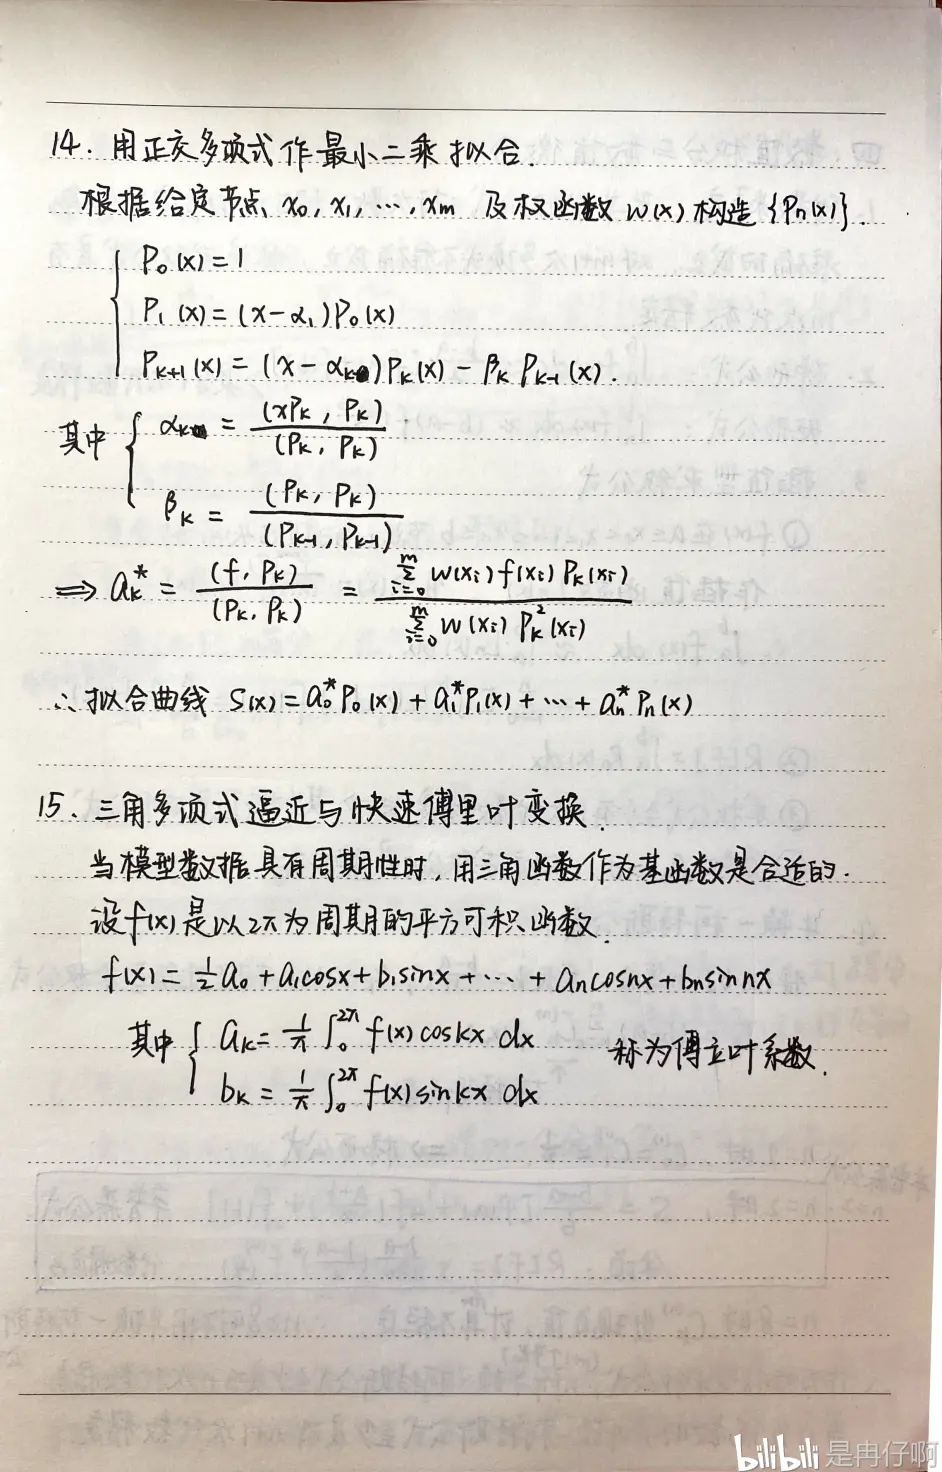 14. 用正交多项式作最小二乘拟合.
根据给定节点 x₀, x₁, …, xₘ 及权函数 w(x) 构造 {Pₙ(x)}.
P₀(x) = 1
P₁(x) = (x-α₁)P₀(x)
Pₖ₊₁(x) = (x-αₖ)Pₖ(x) - βₖ Pₖ₋₁(x).
其中 αₖ = (xPₖ, Pₖ) / (Pₖ, Pₖ)
βₖ = (Pₖ, Pₖ) / (Pₖ₋₁, Pₖ₋₁)
⟹ aₖ* = (f, Pₖ) / (Pₖ, Pₖ) = Σᵢ₌₀ᵐ w(xᵢ)f(xᵢ)Pₖ(xᵢ) / Σᵢ₌₀ᵐ w(xᵢ)Pₖ²(xᵢ)
∴ 拟合曲线 S(x) = a₀*P₀(x) + a₁*P₁(x) + … + aₙ*Pₙ(x)
15. 三角多项式逼近与快速傅里叶变换.
当模型数据具有周期性时, 用三角函数作为基函数是合适的.
设f(x)是以2π为周期的平方可积函数.
f(x) = ½a₀ + a₁cosx + b₁sinx + … + aₙcosnx + bₙsinnx
其中 aₖ = 1/π ∫₀²π f(x)coskx dx 称为傅立叶系数.
bₖ = 1/π ∫₀²π f(x)sinkx dx
bilibili 是冉仔啊